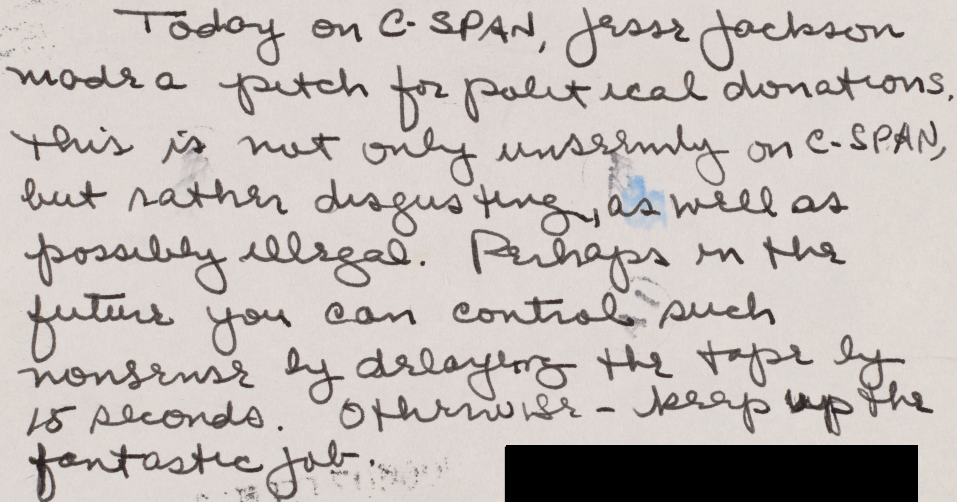 Today on C-SPAN, Jesse Jackson
made a pitch for political donations.
This is not only unseemly on C-SPAN,
but rather disgusting, as well as
possibly illegal. Perhaps in the
future you can control such
nonsense by delaying the tape by
15 seconds. Otherwise - keep up the
fantastic job.